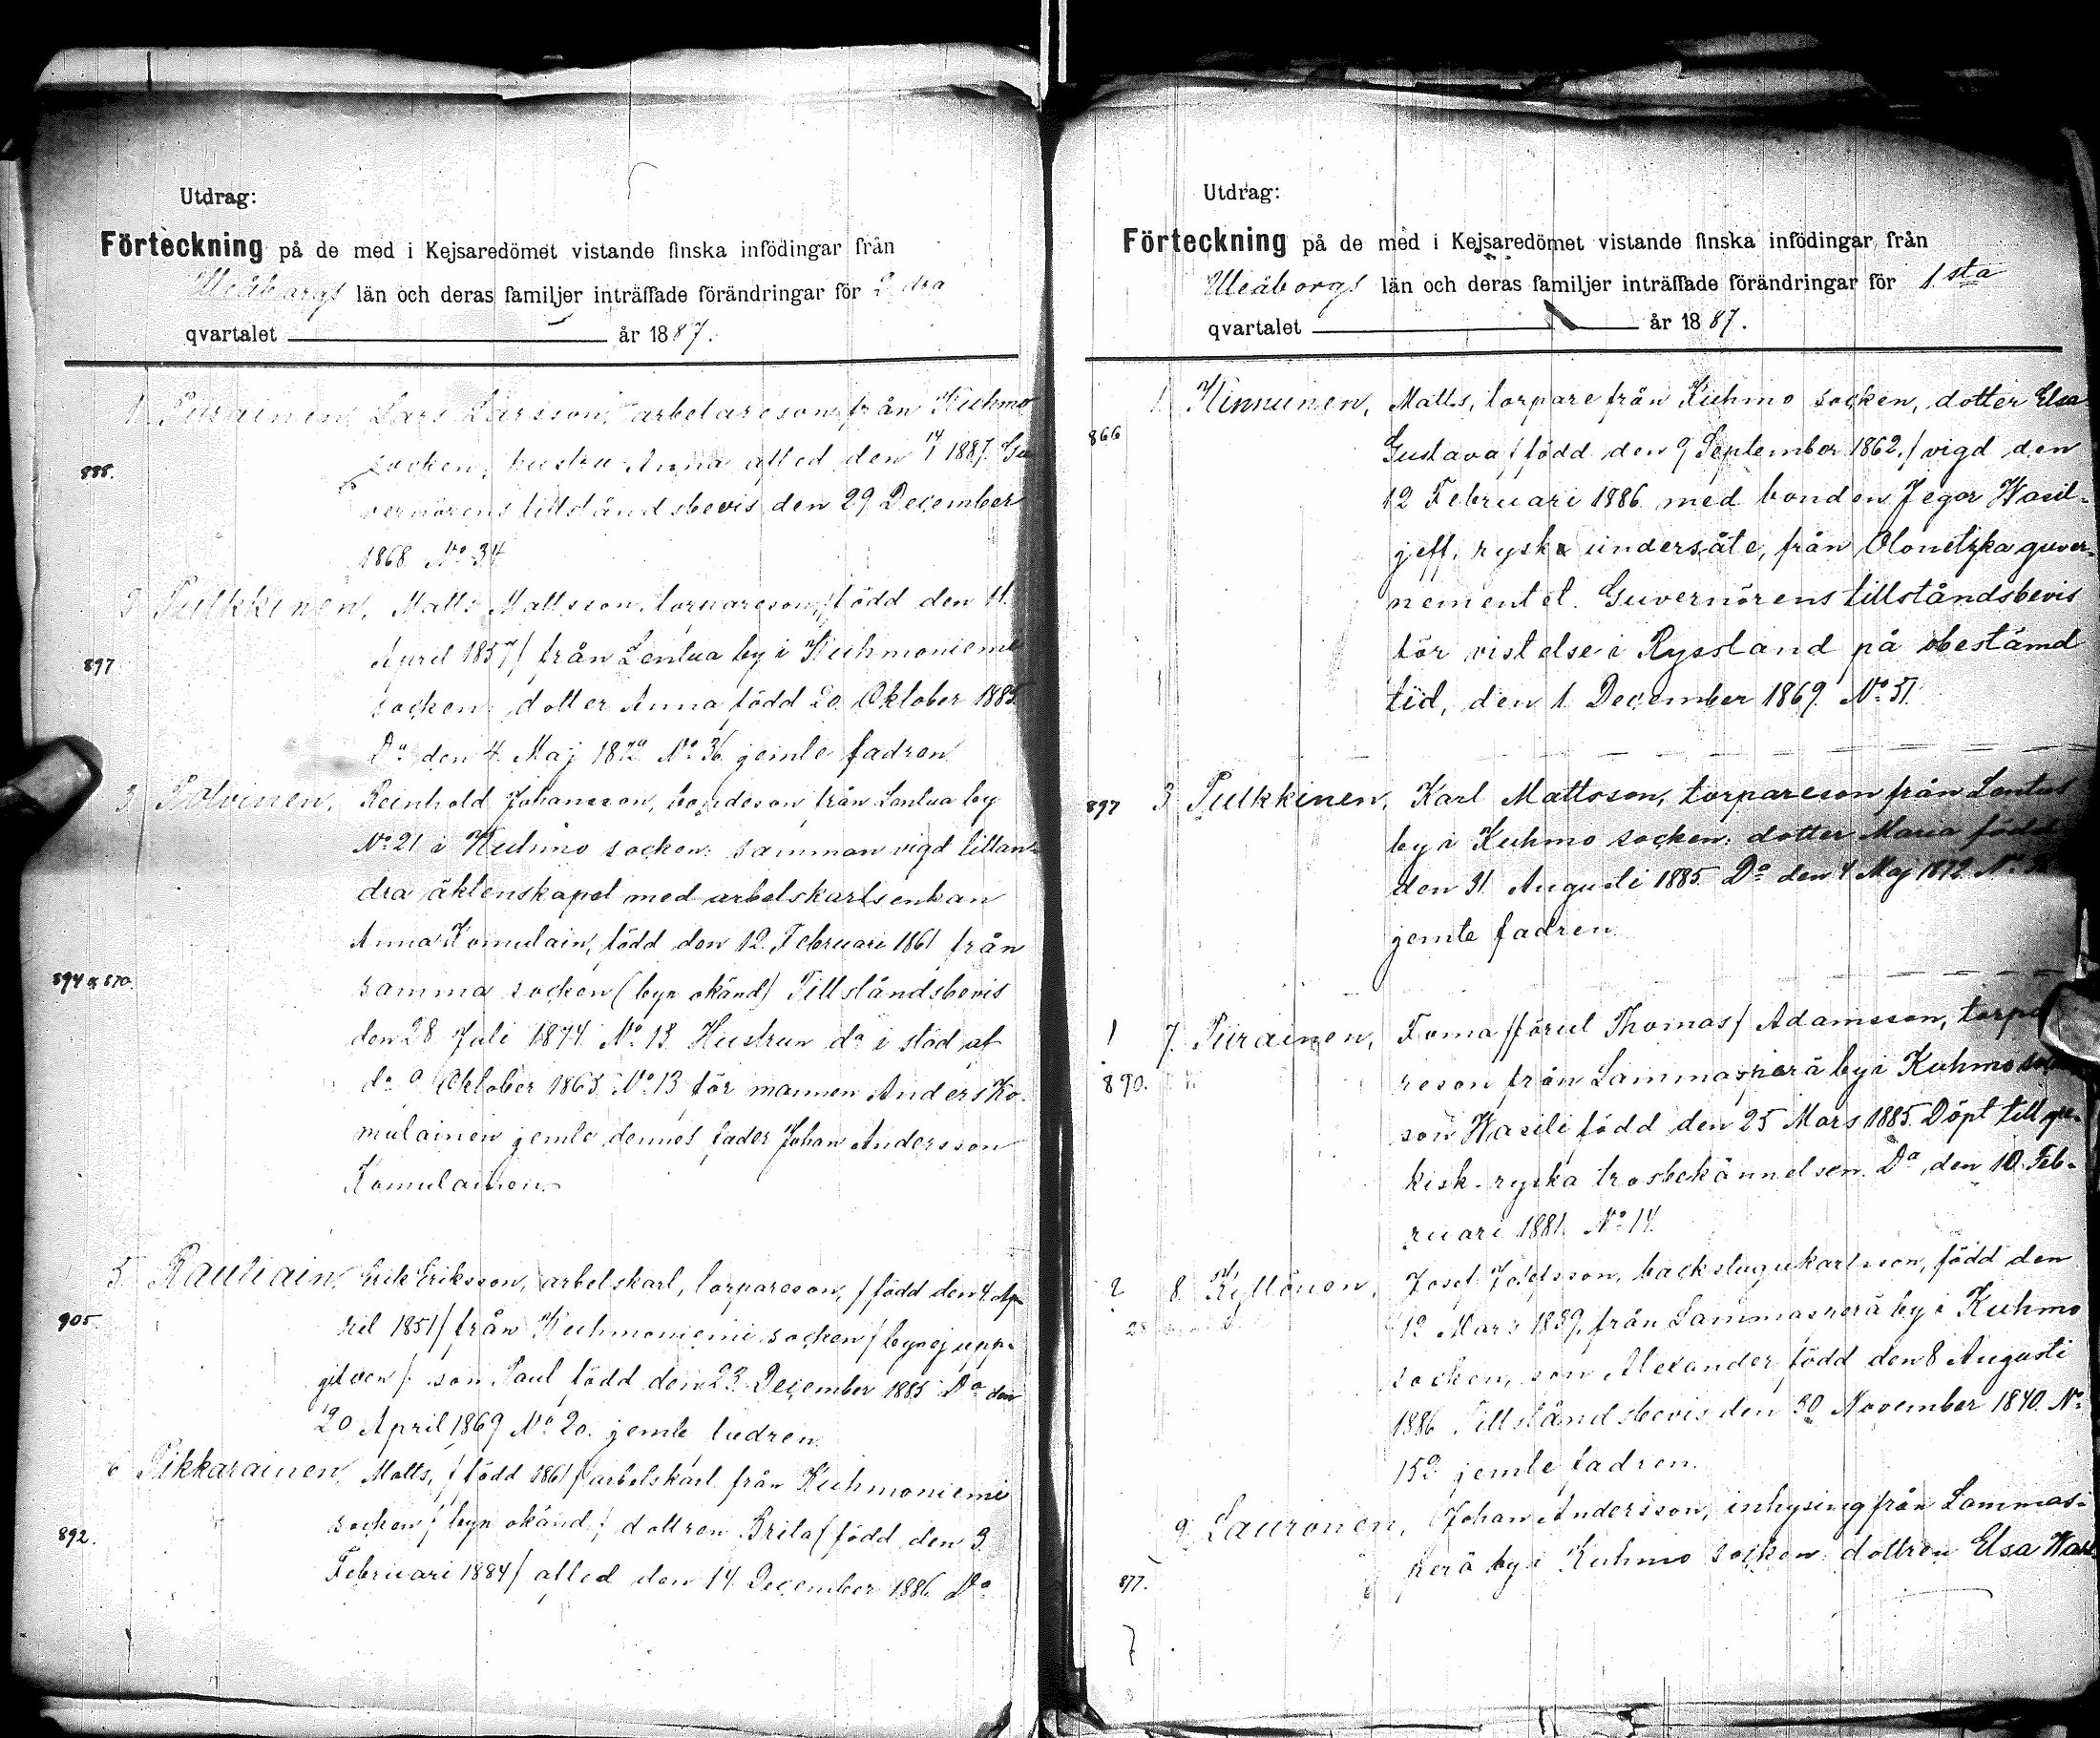 Utdrag:
Förteckning på de med i Kejsaredömet vistande finska infödingar från
Uleåborgs län och deras familjer inträffade förändringar för 2 dra
qvartalet år 1887.
1. Piirainen, Lars Larsson, arbetareson från Kuhmo
888.
socken, hustru Anna afled den 14/1 1887. Gu
vernörens tillståndsbevis den 29 December
1868 No 34
2 Pulkkinen, Matts Mattsson, torpareson, född den 11.
April 1857/ från Lentua by i Kuhmoniemi
897
socken: dotter Anna född 20 Oktober 1885
Do den 4. Maj 1872 No 36. jemte fadren.
3. Polvinen, Reinhold Johansson, bondeson från Lentua by
No 21 i Kuhmo socken: samman vigd till an-
dra äktenskapet med arbetskarlsenkan
Anna Komulain, född den 12. Februari 1861 från
894 & 870.
samma socken (byn okänd) Tillståndsbevis
den 28 Juli 1874 No 13. Hustrun do i stöd af
do 9 Oktober 1865 No 13 för mannen Anders Ko-
mulainen jemte dennes fader Johan Andersson
Komulainen.
5. Rautiain, Erik Eriksson, arbetskarl, torpareson, /född den 4. Ap-
905
ril 1851/ från Kuhmoniemi socken /byn ej upp-
gifven/: son Paul född den 23. December 1885 Do den
20 April 1869 No 20. jemte fadren.
6 Pikkarainen, Matts, /född 1861/ arbetskarl från Kuhmoniemi
socken /byn okänd/ dottren Brita /född den 3.
892.
Februari 1884/ afled den 14. December 1886. Do
Utdrag:
Förteckning på de med i Kejsaredömet vistande finska infödingar från
Uleåborgs län och deras familjer inträffade förändringar för 1.sta
qvartalet år 1887.
1. Kinnunen, Matts, torpare från Kuhmo socken, dotter Elsa
866
Gustava /född den 9 September 1862./ vigd den
12 Februari 1886 med bonden Jegor Wasil-
jeff, ryska undersåte, från Olonetzka guver-
nementet. Guvernörens tillståndsbevis
för vistelse i Ryssland på obestämd
tid, den 1. December 1869. No 51.
897 3. Pulkkinen, Karl Mattsson, torpareson från Lentua
by i Kuhmo socken: dotter Maria född
den 31 Augusti 1885 Do den 4 Maj 1872 No
jemte fadren.
1 7. Piirainen, Foma /förut Thomas/ Adamsson, torpa
890.
reson från Lammasperä by i Kuhmo
son Wasili född den 25 Mars 1885. Döpt till gre-
kisk-ryska trosbekännelsen. Do den 10. Feb-
ruari 1881. No 14.
2 8. Kyllönen, Josef Josefsson, backstugukarlsson, född den
12 Mars 1859, från Lammasperä by i Kuhmo
socken, son Alexander född den 8 Augusti
1886. Tillståndsbevis den 30 November 1840. No
152 jemte fadren.
9. Lauronen, Johan Andersson, inhysing från Lammas-
perä by i Kuhmo socken: dottren Elsa
877.
7